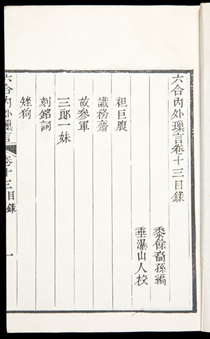 六合內外瑣言卷十三目錄
黍餘裔孫編
垂瀑山人校
祖巨腹
識務齋
故參軍
三郎一妹
刻銘詞
矮狗
六合內外瑣言
卷十三目錄
一